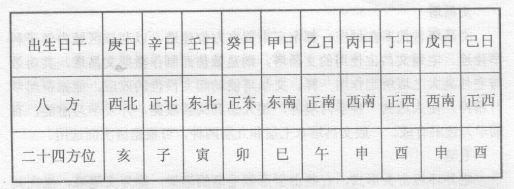 出生日干 庚日 辛日 壬日 癸日 甲日 乙日 丙日 丁日 戊日 己日
八方 西北 正北 东北 正东 东南 正南 西南 正西 西南 正西
二十四方位 亥 子 寅 卯 巳 午 申 酉 申 酉